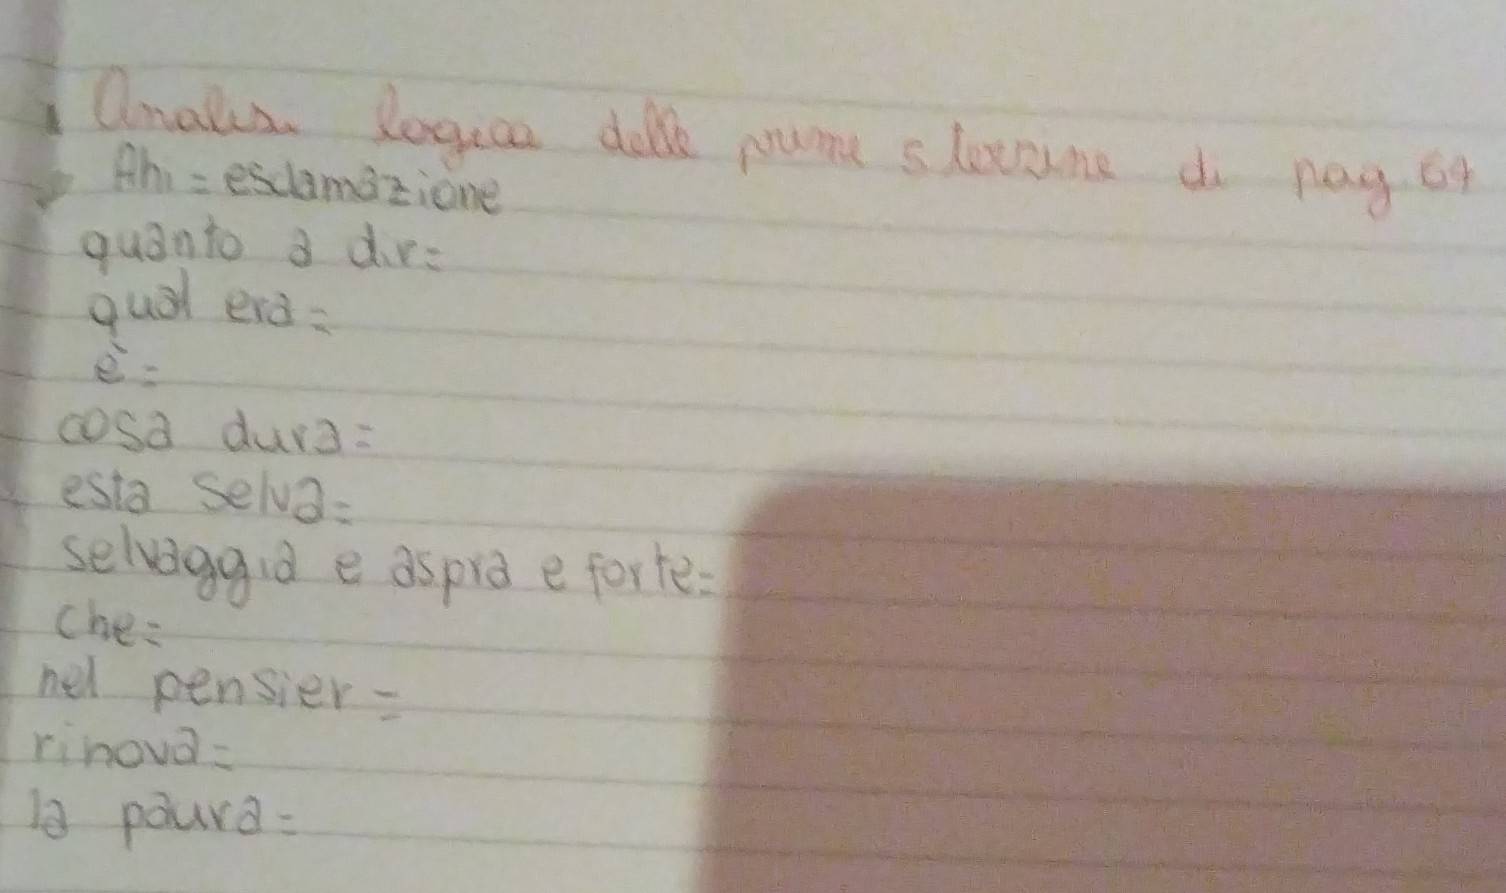 Analisi logica delle prime 5 terzine di pag 64
Ahi = esclamazione
quanto a dir =
qual era =
è =
cosa dura =
esta selva =
selvaggia e aspra e forte =
che =
nel pensier =
rinova =
la paura =